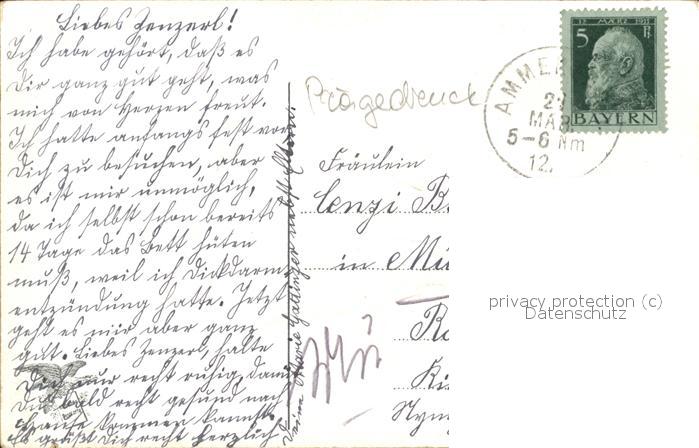 Liebes Zenzerl!
Ich habe gehört, daß es
Dir ganz gut geht, was
mich von Herzen freut.
Ich hatte anfangs fest vor
Dich zu besuchen, aber
es ist mir unmöglich,
da ich selbst schon bereits
14 Tage das Bett hüten
muß, weil ich Dickdarm
entzündung hatte. Jetzt
geht es mir aber ganz
gut. Liebes Zenzerl, halte
Dich nur recht ruhig, damit
Du bald recht gesund nach
Hause kommen kannst.
Es grüßt Dich recht herzlich
Deine Marie nebst Eltern.
Prägedruck
Fräulein
Cenzi B
in Mü
Nym
12. MÄRZ 1911
5 Pf
BAYERN
AMME
2
MÄR
5-6 Nm
12.
privacy protection (c)
Datenschutz